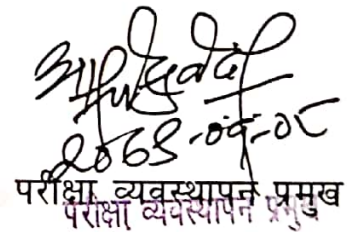 २०६९-०९-०८
परीक्षा व्यवस्थापन प्रमुख
परीक्षा व्यवस्थापन प्रमुख